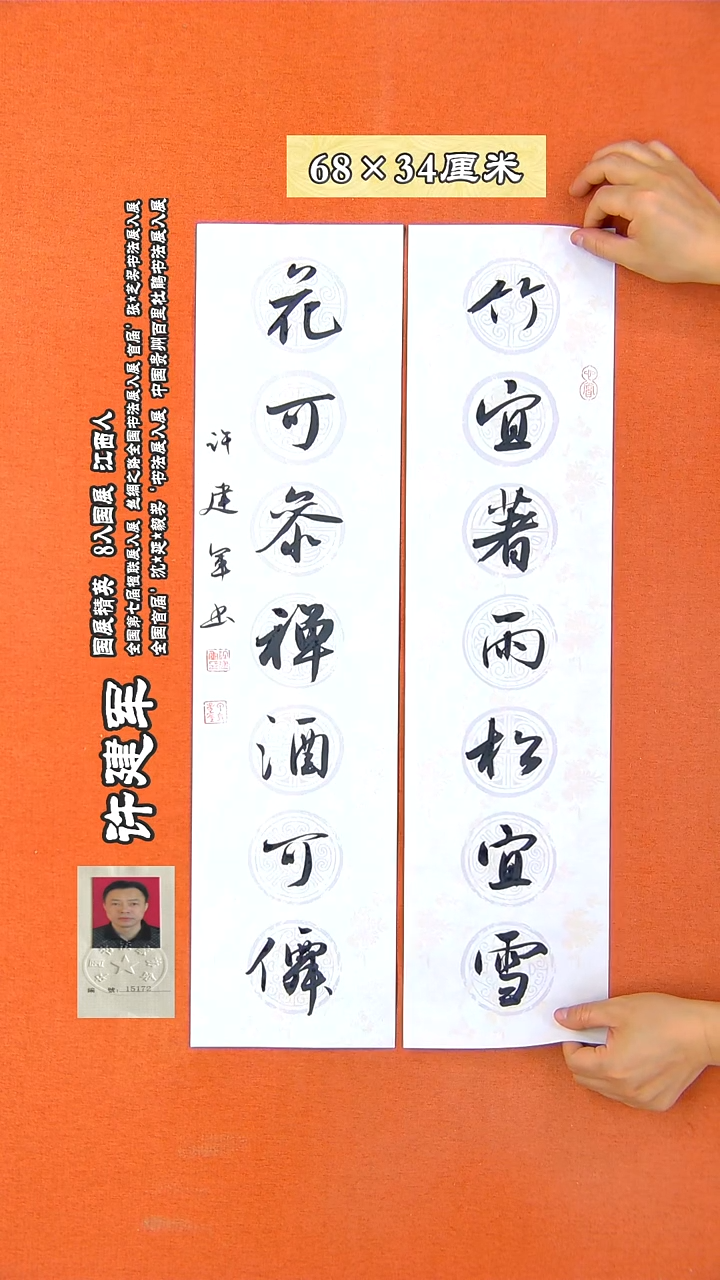 68×34厘米
竹宜著雨松宜雪
花可参禅酒可僊
许建军书
许建军
国展精英 8入国展 江西人
全国第七届楹联展入展 丝绸之路全国书法展入展 首届'张★芝奖书法展入展
全国首届'沈★延★毅奖'书法展入展 中国贵州百里杜鹃书法展入展
号: 15172